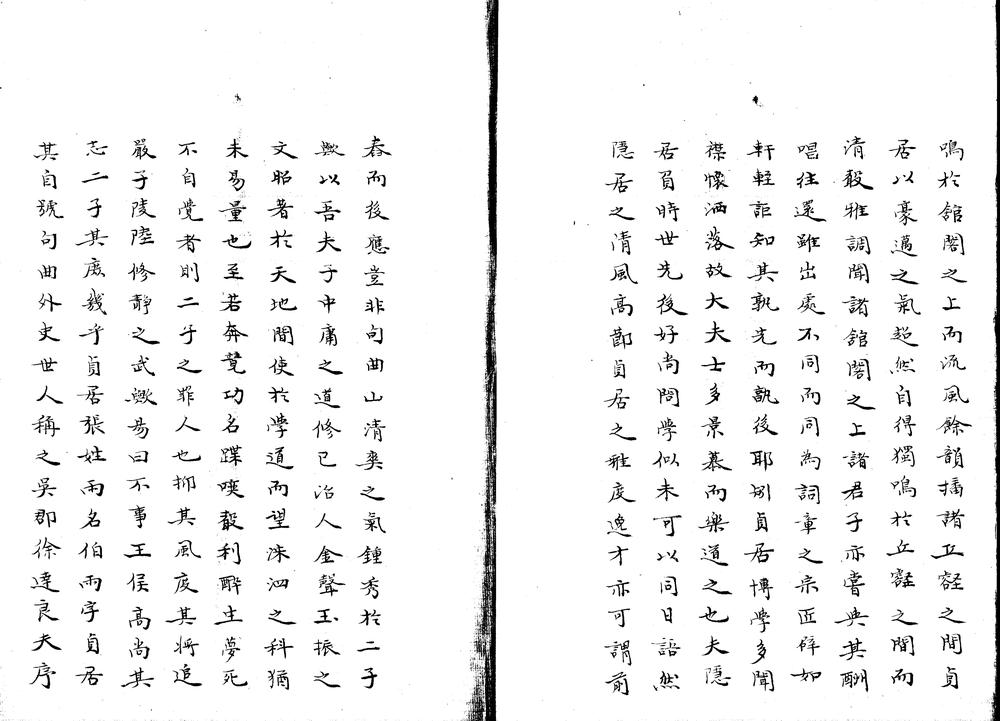 鳴於舘閣之上而流風餘韻播諸丘壑之間貞
居以豪邁之氣超然自得獨鳴於丘壑之間而
清聲雅調聞諸舘閣之上諸君子亦嘗與其酬
唱往還雖出處不同而同為詞章之宗匠辟如
軒輊詎知其孰先而孰後耶別貞居博學多聞
襟懷洒落故大夫士多景慕而樂道之也夫隱
居貞時世先後好尚問學似未可以同日語然
隱居之清風高節貞居之雅度逸才亦可謂前
春而後應豈非句曲山清奥之氣鍾秀於二子
歟以吾夫子中庸之道修己治人金聲玉振之
文昭著於天地間使於學道而望洙泗之科猶
未易量也至若奔鶩功名蹀唼聲利醉生夢死
不自覺者則二子之罪人也抑其風度其將追
嚴子陵陸修靜之武歟易曰不事王侯高尚其
志二子其庶幾乎貞居張姓雨名伯雨字貞居
其自號句曲外史世人稱之吳郡徐達良夫序